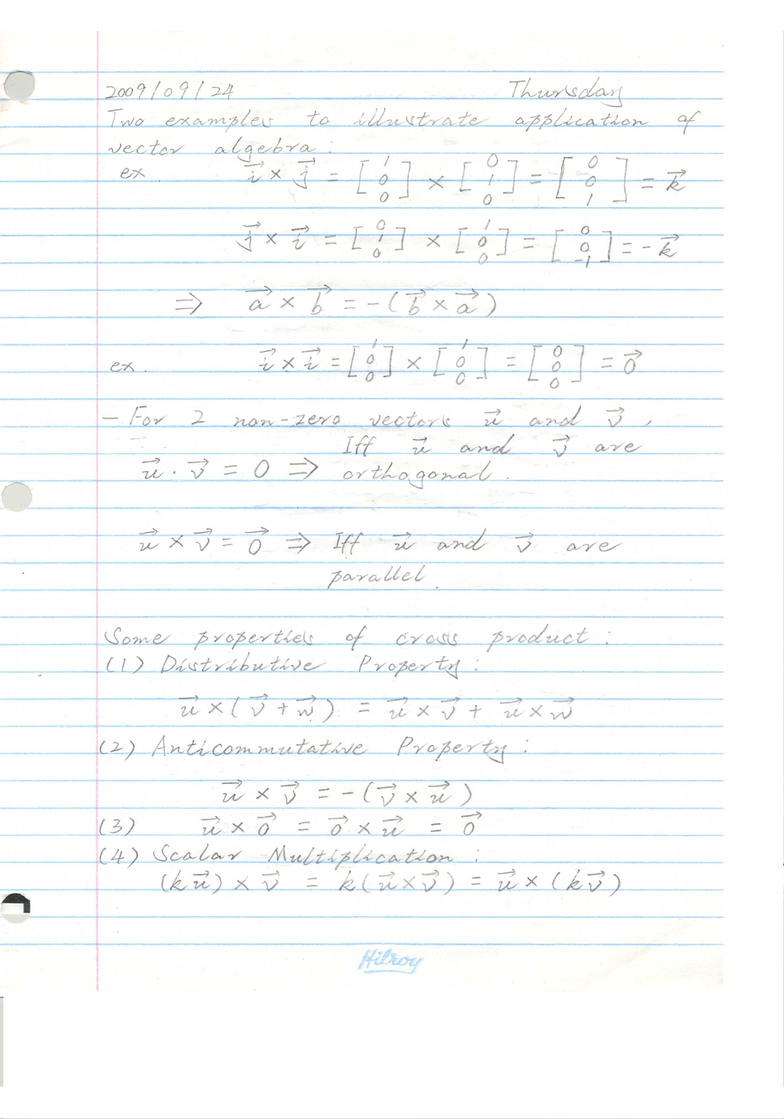 2009/09/24 Thursday
Two examples to illustrate application of
vector algebra:
ex. i⃗ × j⃗ = [1 0 0] × [0 1 0] = [0 0 1] = k⃗
j⃗ × i⃗ = [0 1 0] × [1 0 0] = [0 0 -1] = -k⃗
⇒ a⃗ × b⃗ = -(b⃗ × a⃗)
ex. i⃗ × i⃗ = [1 0 0] × [1 0 0] = [0 0 0] = 0⃗
- For 2 non-zero vectors u⃗ and v⃗,
Iff u⃗ and v⃗ are
u⃗ · v⃗ = 0 ⇒ orthogonal.
u⃗ × v⃗ = 0⃗ ⇒ Iff u⃗ and v⃗ are
parallel.
Some properties of cross product:
(1) Distributive Property:
u⃗ × (v⃗ + w⃗) = u⃗ × v⃗ + u⃗ × w⃗
(2) Anticommutative Property:
u⃗ × v⃗ = -(v⃗ × u⃗)
(3) u⃗ × 0⃗ = 0⃗ × u⃗ = 0⃗
(4) Scalar Multiplication:
(ku⃗) × v⃗ = k(u⃗ × v⃗) = u⃗ × (kv⃗)
Hilroy